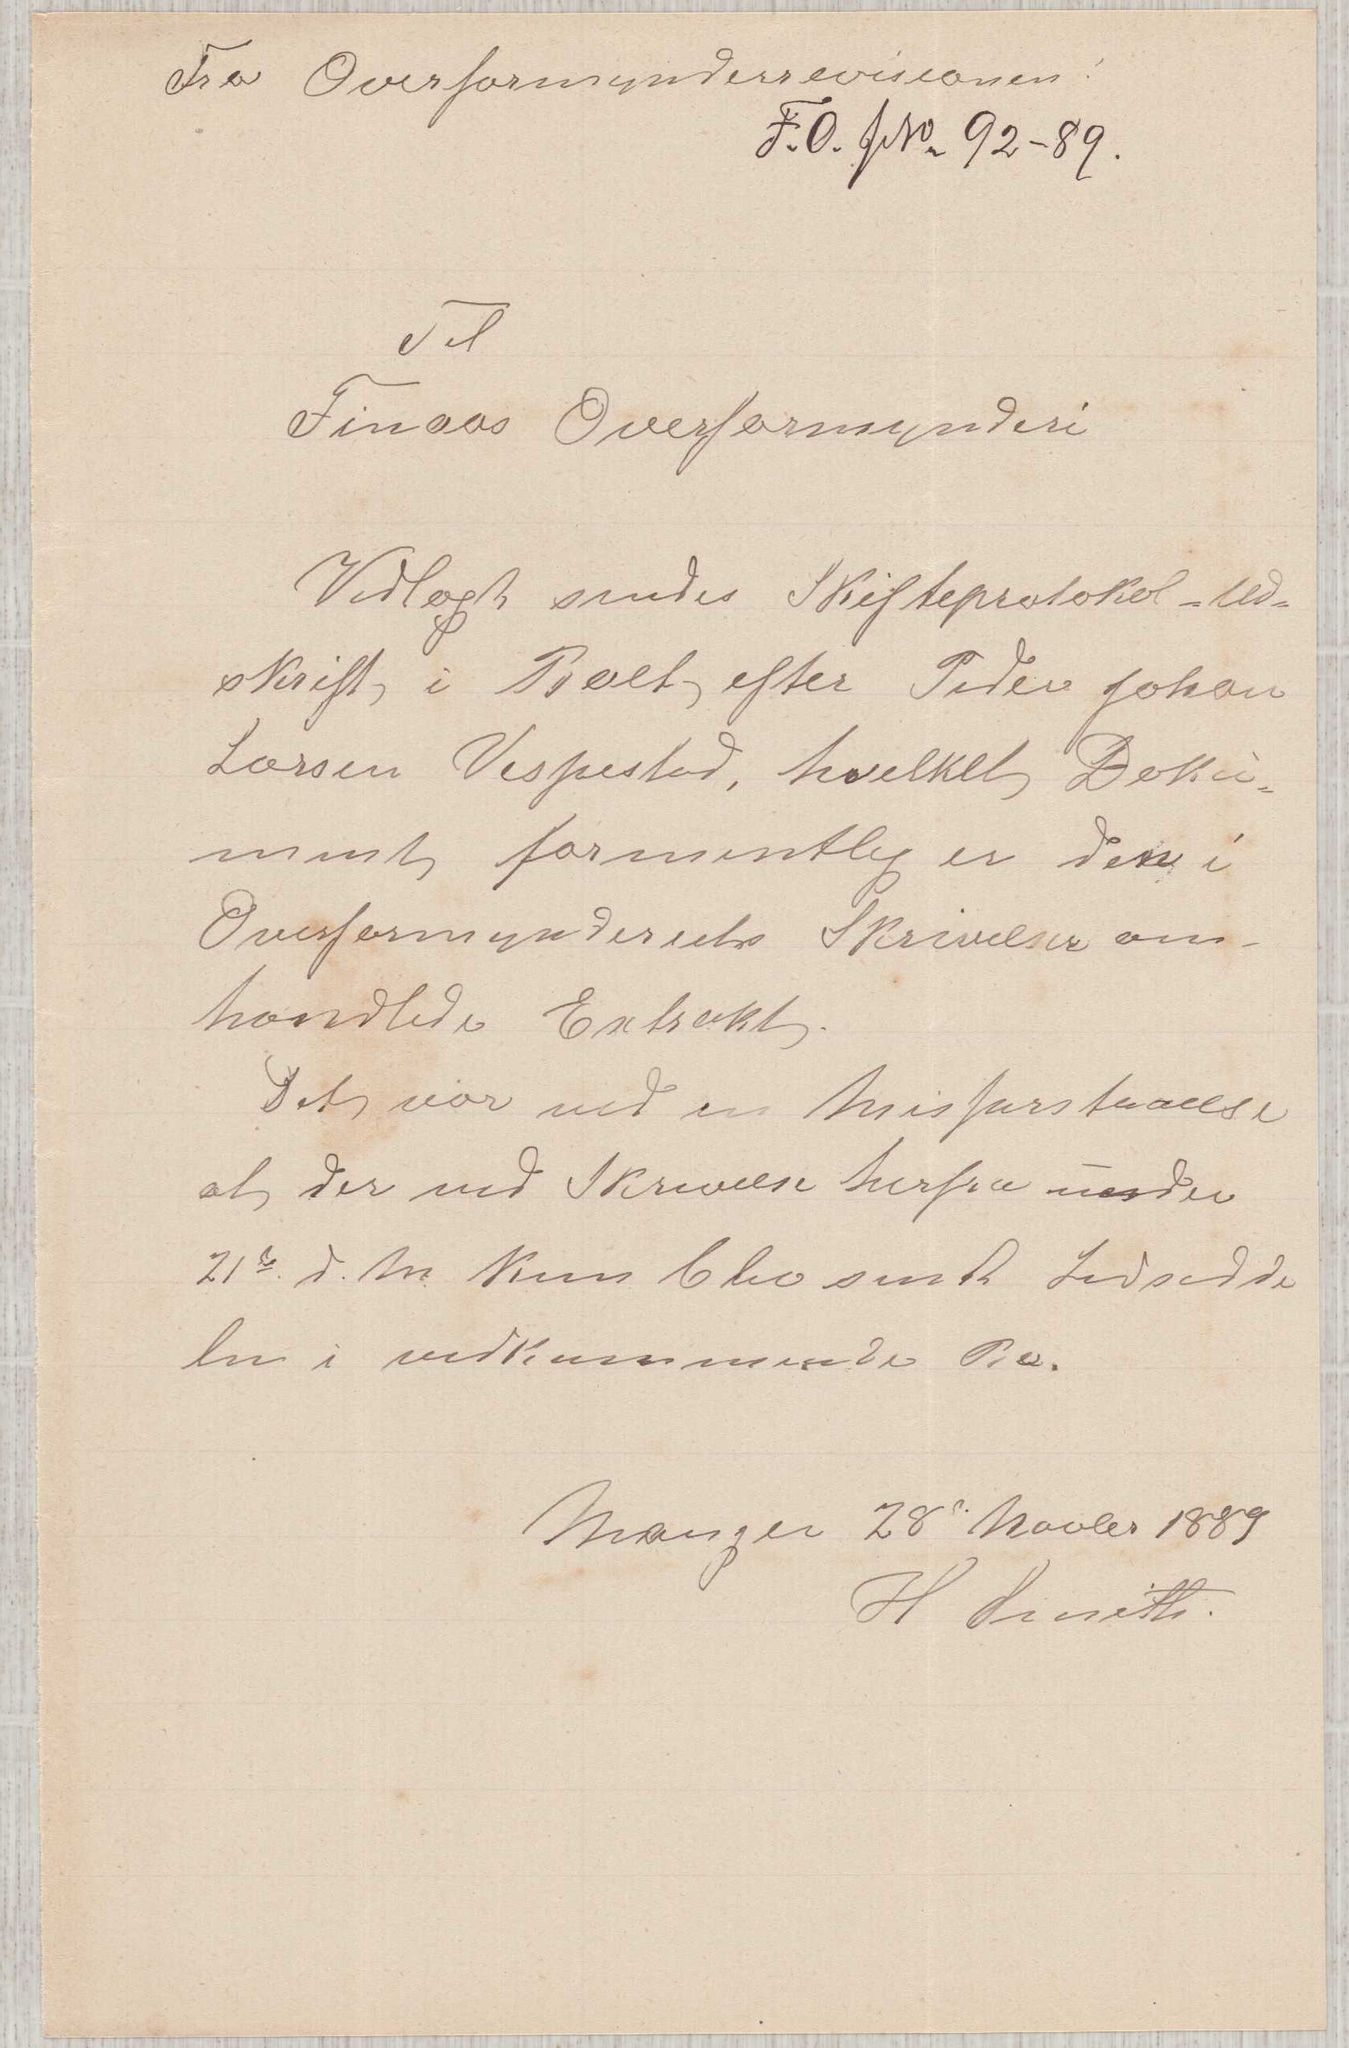 Fra Overformynderrevisionen.
F.O. JNo. 92-89.
Til
Finaas Overformynderi
Vedlagt sendes Skifteprotokol-Ud-
skrift i Boet efter Peder Johan
Larsen Vespestad, hvilket Doku-
ment formentlig er den i
Overformynderiets Skrivelse om-
handlede Extrakt.
Det var ved en Misforstaaelse
at der ved Skrivelse herfra under
21de d. M. kun blev sendt Lodsedde
len i vedkommende Bo.
Manger 28de Novber 1889
H Smith.